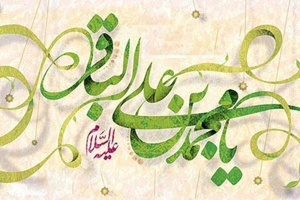 یا محمد بن علی الباقر
علیه السلام